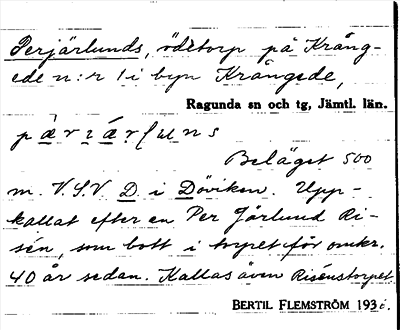 Perjärlunds, ödetorp på Krång-
ede n:r 1 i byn Krångede,
Ragunda sn och tg, Jämtl. län.
Beläget 500
m. V.S.V. D. i Döviken. Upp-
kallat efter en Per Järlund Ri-
sén, som bott i torpet för omkr.
40 år sedan. Kallas även Risénstorpet
BERTIL FLEMSTRÖM 193